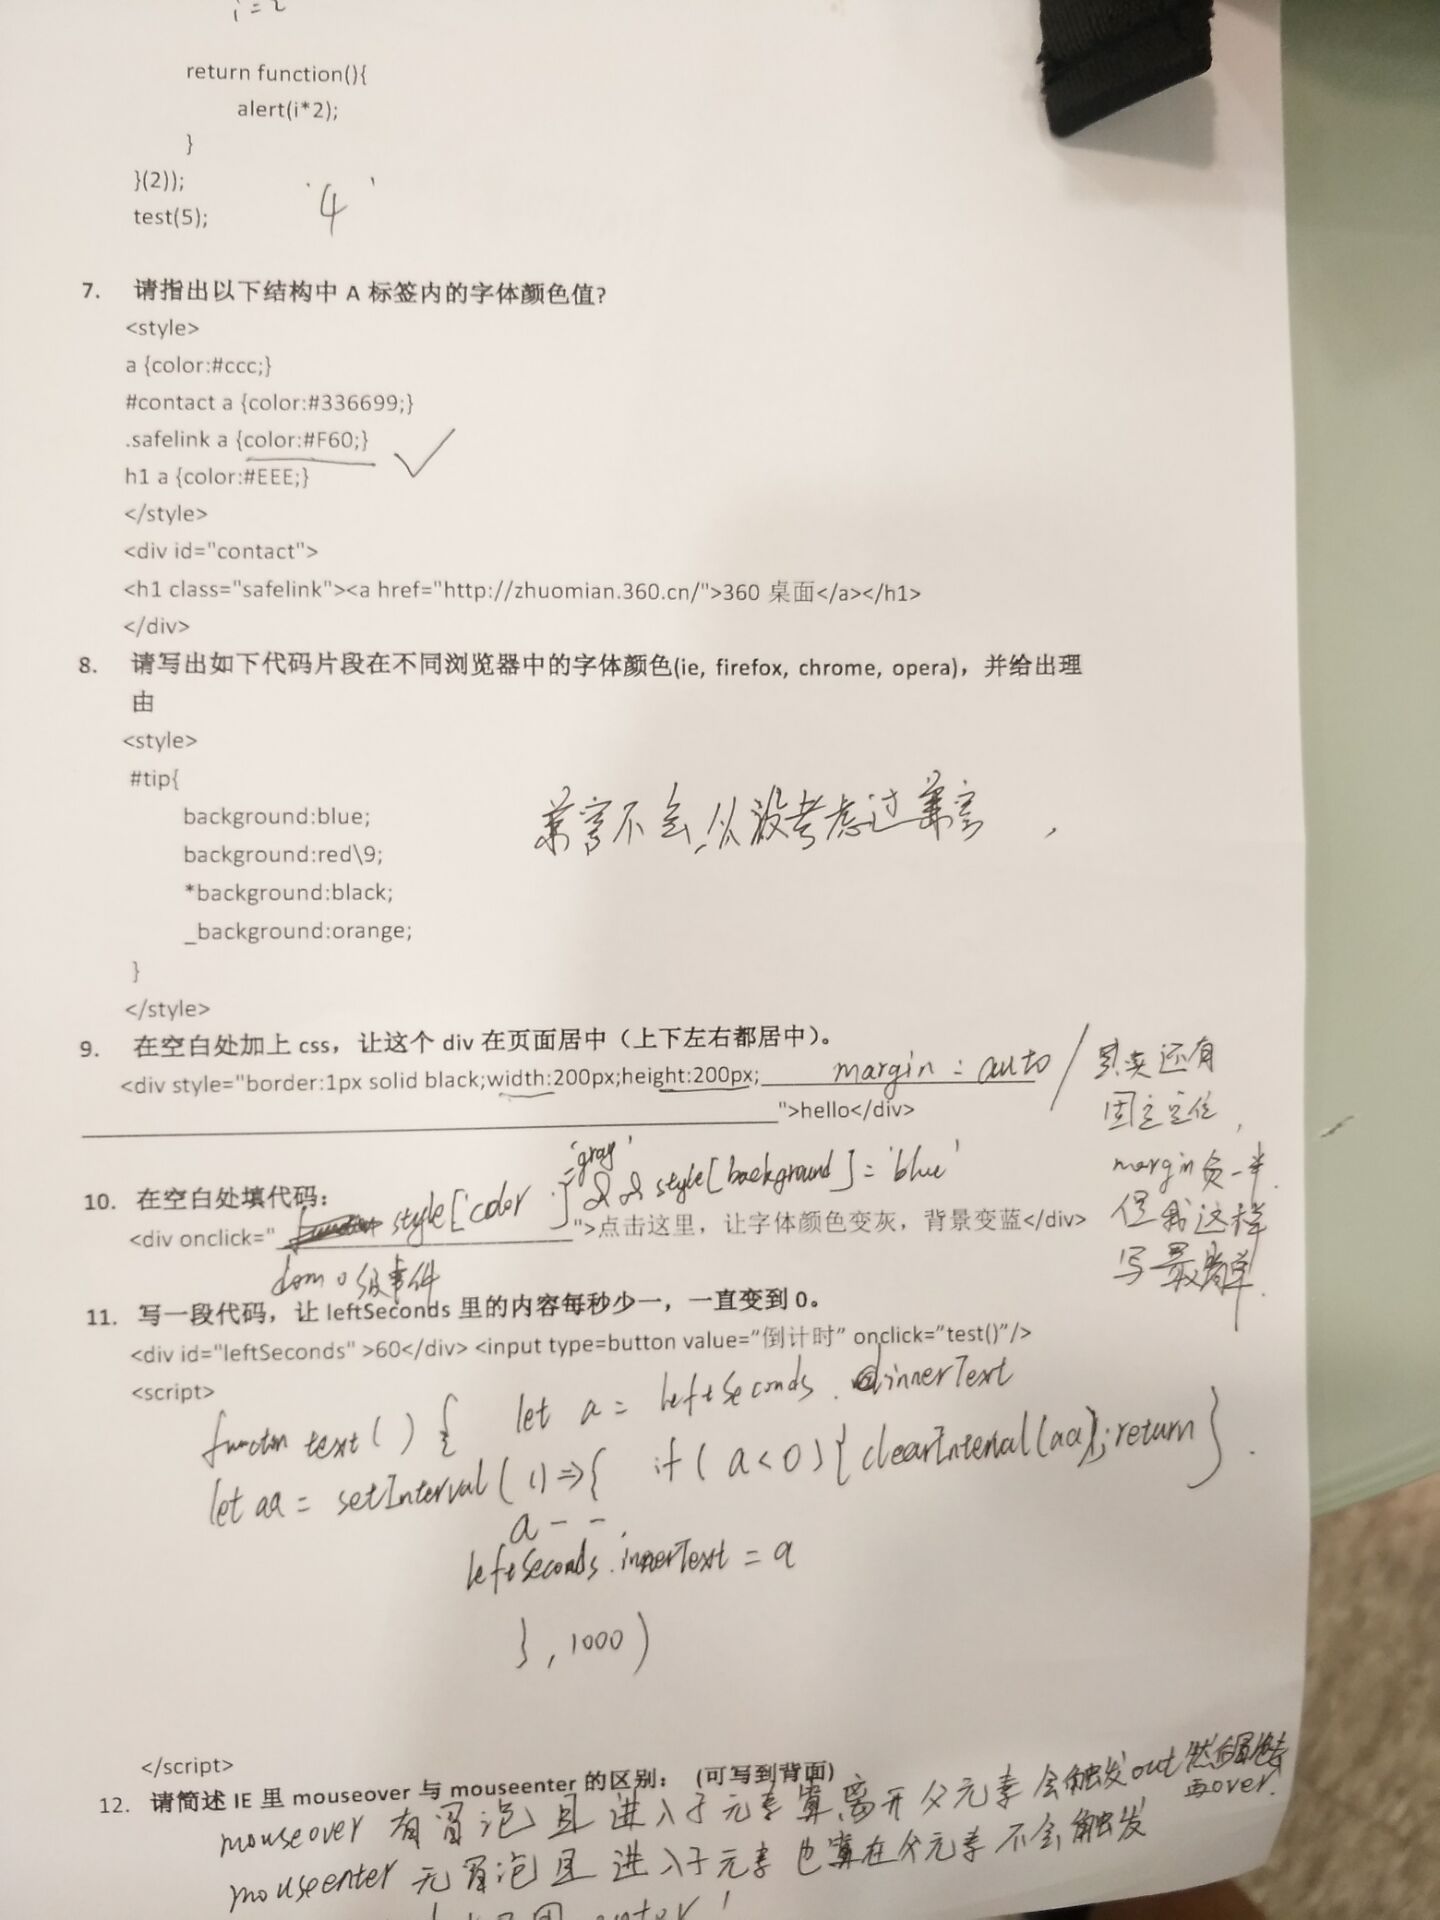 i = 2
return function(){
alert(i*2);
}
}(2));
test(5);
'4'
7. 请指出以下结构中 A 标签内的字体颜色值?
<style>
a {color:#ccc;}
#contact a {color:#336699;}
.safelink a {color:#F60;} ✓
h1 a {color:#EEE;}
</style>
<div id="contact">
<h1 class="safelink"><a href="http://zhuomian.360.cn/">360 桌面</a></h1>
</div>
8. 请写出如下代码片段在不同浏览器中的字体颜色(ie, firefox, chrome, opera)，并给出理
由
<style>
#tip{
background:blue;
background:red\9;
*background:black;
_background:orange;
}
</style>
兼容不会,从没考虑过兼容,
9. 在空白处加上 css，让这个 div 在页面居中（上下左右都居中）。
<div style="border:1px solid black;width:200px;height:200px; margin: auto /
">hello</div>
其实还有
固定定位,
margin负一半.
但我这样
写最简单.
10. 在空白处填代码：
style['color']='gray' && style[background]='blue'
<div onclick=" ">点击这里，让字体颜色变灰，背景变蓝</div>
dom 0级事件
11. 写一段代码，让 leftSeconds 里的内容每秒少一，一直变到 0。
<div id="leftSeconds" >60</div> <input type=button value=”倒计时” onclick=”test()”/>
<script>
functon text() { let a = leftSeconds.innerText
let aa = setInterval(()=>{ if(a<0){clearInterval(aa);return}.
a--.
leftSeconds.innerText = a
},1000)
</script>
12. 请简述 IE 里 mouseover 与 mouseenter 的区别： （可写到背面）
mouseover 有冒泡且进入子元素算离开父元素会触发out然后冒泡
再over.
mouseenter 无冒泡且进入子元素也算在父元素不会触发